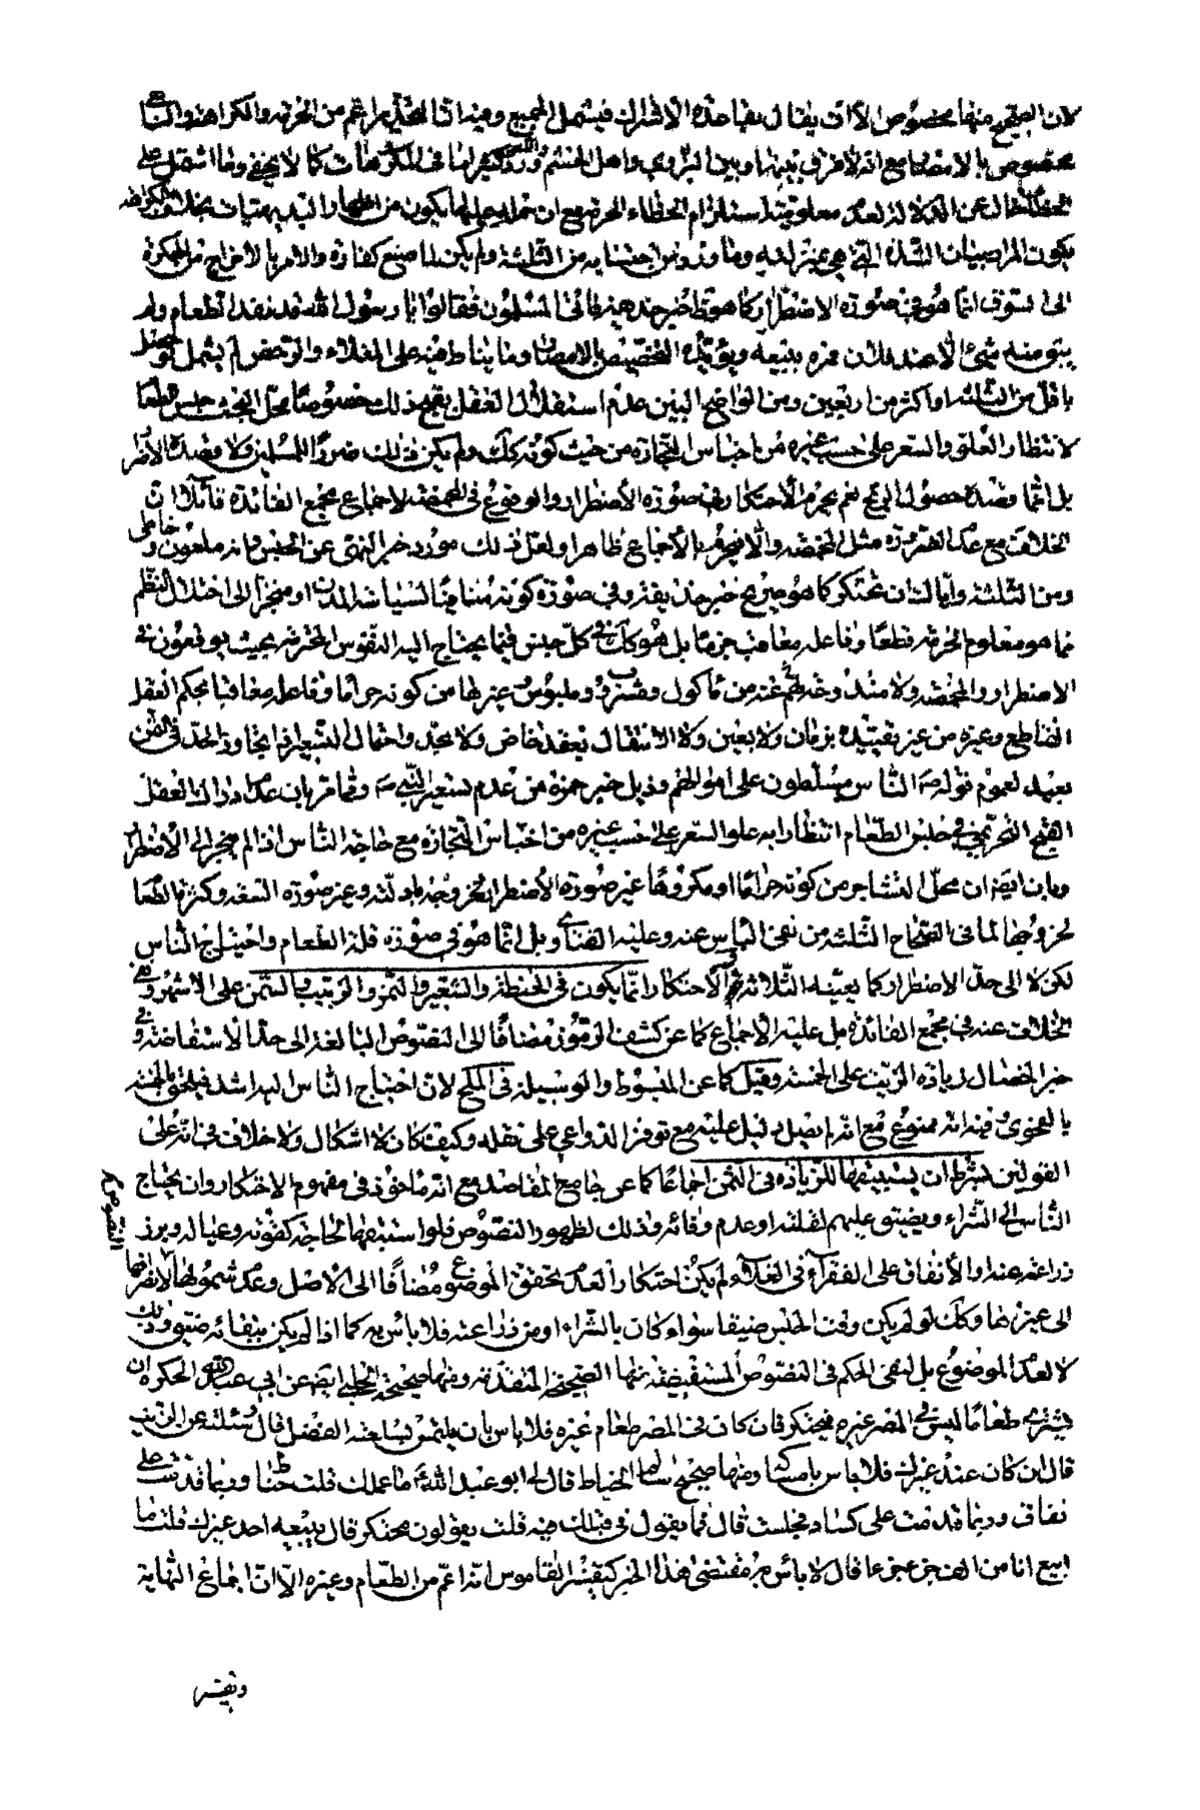 لان الصحيح منها مخصوص الا ان يقال بقاعدة الاشتراك فيشمل الجميع وفيه ان التحذير اعم من الحرمة والكراهة والثانى
مخصوص بالامصار مع انه لا فرق بينها وبين البوادى واهل الخيم وورد اللعن كثيرا ما فى المكروهات كما لا يخفى وما اشتمل على
الخطا خال عن الدلالة لعدم معلومية استلزام الخطاء الحرمة مع ان
يكون المراد بيان الشدة التى هى بمنزلة وما ورد من اجتنابه من الثلثة ولم يكن لما صنع كفارة والامر بالاخراج من الحكرة
الى السوق انما هو فى صورة الاضطرار كما هو ظ خبر حذيفة فاتى المسلمون فقالوا يا رسول الله قد نفد الطعام ولم
يبق منه شئ الا عند فلان فمره ببيعه ويؤيده التخصيص بالامصار وما يناط فيه على الغلاء والرخص لم يشمل لو حصل
باقل من الثلثة او اكثر من اربعين ومن الواضح البين عدم استقلال العقل بقبح ذلك خصوصا محل البحث حبس الطعام
لانتظار العلو والسعر على حسب غيره من اجناس التجارة من حيث كونه كك ولم يكن ذلك ضررا للمسلمين ولا قصده الاضرار
بل انما قصده حصول الربح نعم يحرم الاحتكار فى صورة الاضطرار والوقوع فى المخمصة لاجماع مجمع الفائدة قائلا ان
الخلاف مع عدم الضرورة مثل المخمصة والا فيحرم بالاجماع ظاهرا ولعل ذلك مورد خبر النهى عن الحبس وانه ملعون وخاطى
ومن الثلثة واياك ان تحتكر كما هو صريح خبر حذيفة وفى صورة كونه منافيا لسياسة المدن او منجرا الى اختلال النظم
مما هو معلوم الحرمة قطعا وفاعله معاقب جزما بل هو كك فى كل حبس فيما يحتاج اليه النفوس المحترمة بحيث يوقعون فى
الاضطرار والمخمصة ولا مندوحة لهم عنه من مأكول ومشروب وملبوس وغيرها من كونه حراما وفاعله معاقبا بحكم العقل
القاطع وغيره من غير تقييده بزمان ولا بعين ولا الانتقال بعقد خاص ولا بحد واحتمال التسعير فيما يجاوز الحد فى الثمن
بعيد لعموم قوله ص الناس مسلطون على اموالهم وذيل خبر حمزة من عدم تسعير النبى ص ومما مر بان عدم ادراك العقل
القبح التحريمى فى حبس الطعام انتظارا به علو السعر على حسب غيره من اجناس التجارة مع حاجة الناس اذا لم ينجر الى الاضطرار
وبان ايضا ان محل التشاجر من كونه حراما او مكروها غير صورة الاضطرار لخروجه بادلته وغير صورة السعة وكثرة الطعام
لخروجها لما فى الصحاح الثلثة من نفى الباس عنه وعليه الفتاوى بل انما هو فى صورة قلة الطعام واحتياج الناس
لكن لا الى حد الاضطرار كما يعينه الثلاثة ثم الاحتكار انما يكون فى الحنطة والشعير والتمر والزبيب والسمن على الاشهر وفى
الخلاف عنه فى مجمع الفائدة بل عليه الاجماع كما عن كشف الرموز مضافا الى النصوص البالغة الى حد الاستفاضة وفى
خبر الخصال زيادة الزيت على الخمسة وقيل كما عن المبسوط والوسيلة فى الملح لان احتياج الناس اليه اشد فيلحق بالخمسة
بالفحوى وفيه انه ممنوع مع انه لم يصل دليل عليه مع توفر الدواعى على نقله وكيف كان لا اشكال ولا خلاف فى انه على
القولين يشترط ان يستبقيها للزيادة فى الثمن اجماعا كما عن جامع المقاصد مع انه مأخوذ فى مفهوم الاحتكار وان يحتاج
الناس الى الشراء ويضيق عليهم لقلته او عدم وفائه وذلك لظهور النصوص فلو استبقيها لحاجة كقوته وعياله وبذر
زراعته عنده او الانفاق على الفقراء فى الغلاء لم يكن احتكارا لعدم تحقق الموضوع مضافا الى الاصل وعدم شمولها لانصرافها
الى غيرها وكك لو لم يكن وقت الحبس ضيقا سواء كان بالشراء او من زراعته فلا بأس به كما اذا لم يكن ببقائه ضيق وذلك
لا لعدم الموضوع بل لنفى الحكم فى النصوص المستفيضة منها الصحيحة المتقدمة ومنها صحيحة الحلبى ايضا عن ابى عبد الله الحكرة ان
يشترى طعاما ليس فى المصر غيره فيحتكر فان كان فى المصر طعام غيره فلا بأس بان يلتمس بسلعته الفضل قال وسئلته عن الزيت
قال ان كان عند غيرك فلا بأس بامساكه ومنها صحيح سالم الخياط قال لى ابو عبد الله ع ما عملك قلت حناط وربما قدمت على
نفاق وربما قدمت على كساد فحبست قال فما يقول فى قبلك فيه قلت يقولون محتكر قال يبيعه احد غيرك قلت ما
ابيع انا من الف جزء جزءا قال لا بأس ثم مقتضى هذا الخبر كتفسير القاموس انه اعم من الطعام وغيره الا ان اجماع النهاية
وتفسير